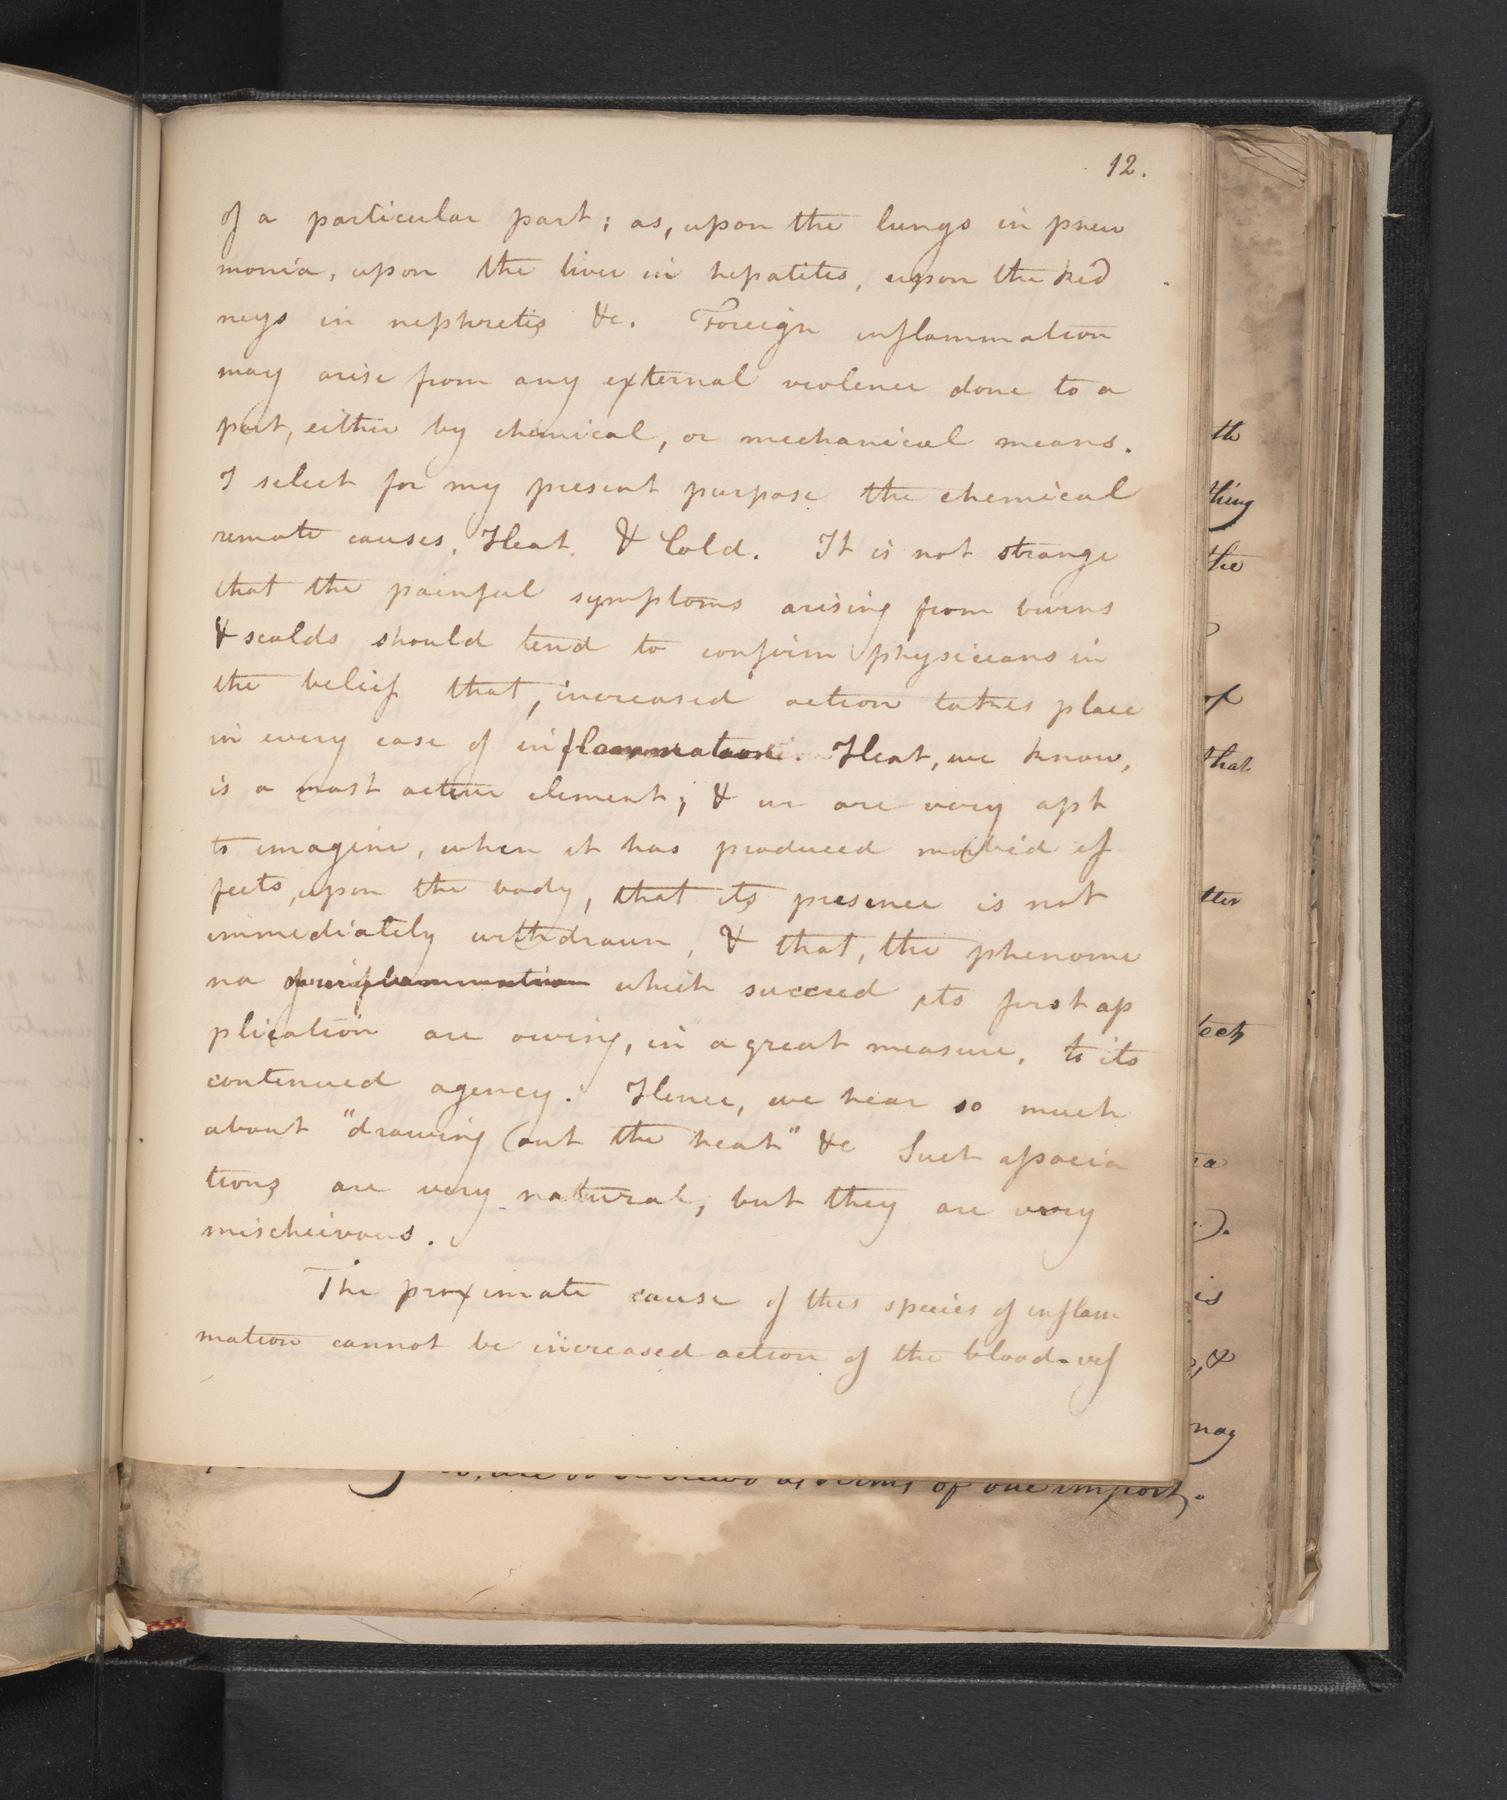 12.
of a particular part; as, upon the lungs in pneu
monia, upon the liver in hepatites, upon the kid
neys in nephretis &c. Foreign inflammation
may arise from any external violence done to a
part, either by chemical, or mechanical means.
I select for my present purpose the chemical
remote causes, Heat, & Cold. It is not strange
that the painful symptoms arising from burns
& scalds should tend to confirm physicians in
the belief that, increased action takes place
in every case of inflammation. Heat, we know,
is a most active element; & we are very apt
to imagine, when it has produced morbid ef
fects, upon the body, that its presence is not
immediately withdrawn, & that, the phenome
na of inflammation which succeed its first ap
plication are owing, in a great measure, to its
continued agency. Hence, we hear so much
about "drawing out the heat" &c Such associa
tions are very natural, but they are very
mischeivous.
The proximate cause of this species of inflam
mation cannot be increased action of the blood-ves
th
thing
the
of
that
tter
is
of one import.